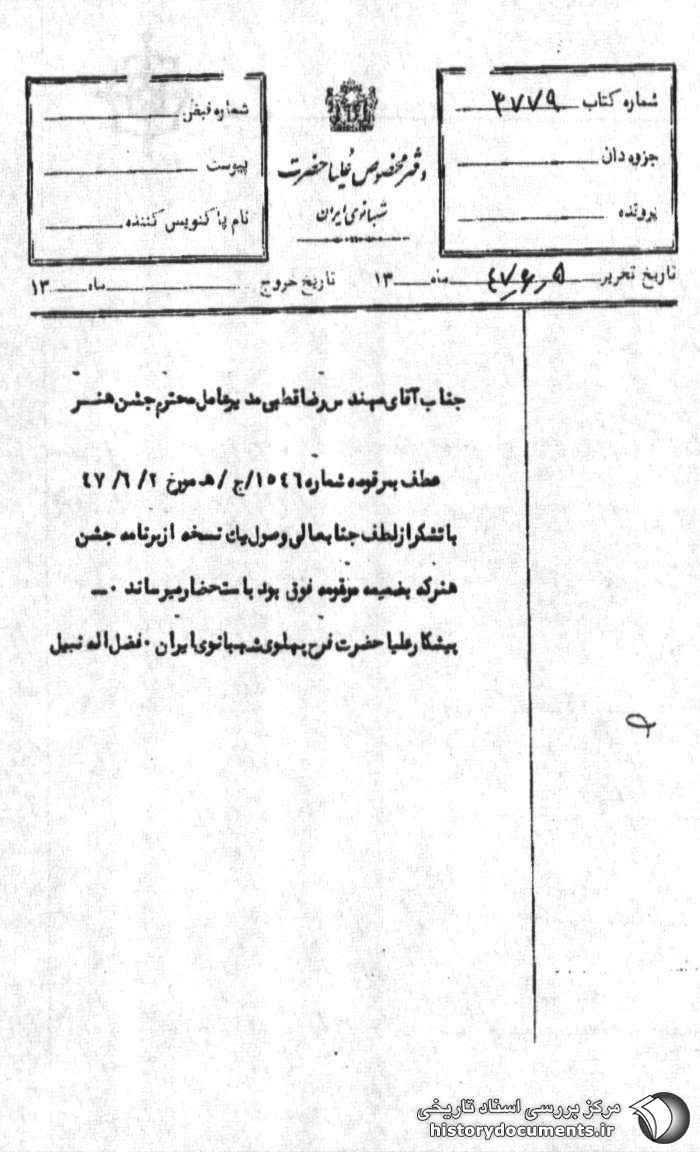 شماره کتاب ۳۷۷۹
جزوه دان
پرونده
دفتر مخصوص علیاحضرت
شهبانوی ایران
شماره قبض
پیوست
نام پاکنویس کننده
تاریخ تحریر ۴۷٫۶٫۵ ماه ۱۳
تاریخ خروج ماه ۱۳
جناب آقای مهندس رضا قطبی مدیرعامل محترم جشن هنر
عطف بمرقومه شماره ۱۵۴۶/ج/هـ مورخ ۴۷/۶/۲
با تشکر از لطف جنابعالی وصول یک نسخه از برنامه جشن
هنر که بضمیمه مرقومه فوق بود باستحضار میرساند ۰ــ
پیشکار علیاحضرت فرح پهلوی شهبانوی ایران ۰ فضل اله نبیل
مرکز بررسی اسناد تاریخی
historydocuments.ir